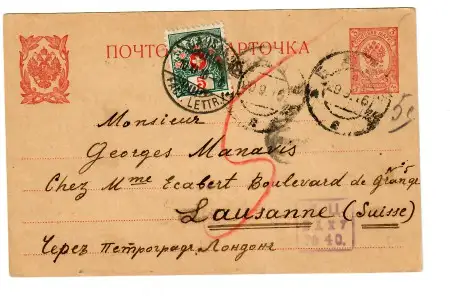 ПОЧТОВАЯ КАРТОЧКА
5
5
Monsieur
Georges Manavis
Chez Mme Ecabert Boulevard de Grange
№ 5
Lausanne (Suisse)
Через Петроградъ Лондонъ
40.